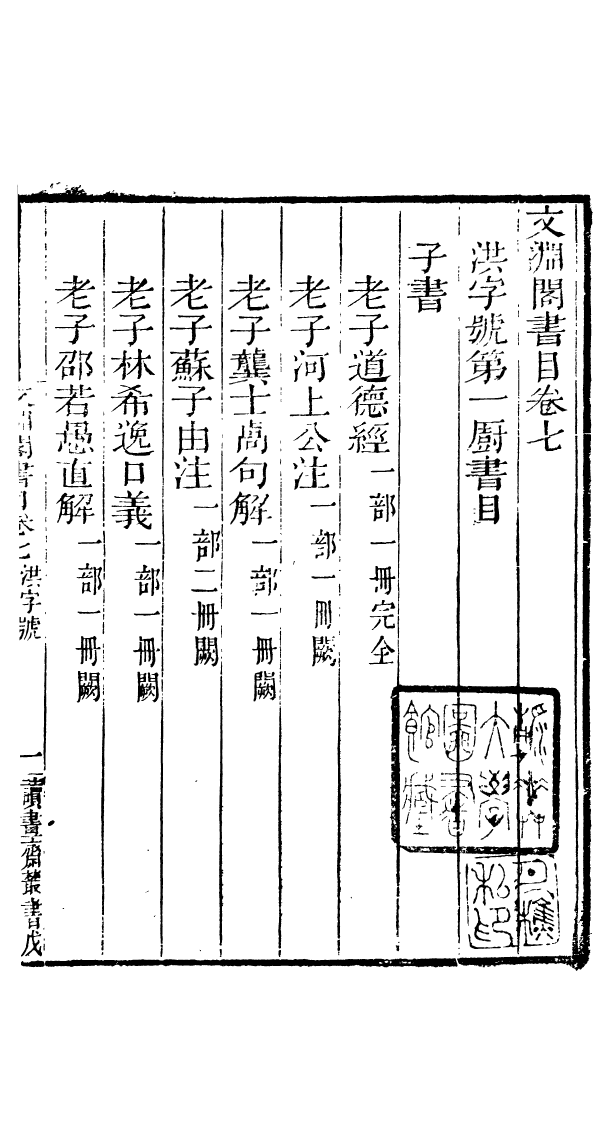 文淵閣書目卷七
洪字號第一廚書目
子書
老子道德經一部一冊完全
老子河上公注一部一冊闕
老子龔士卨句解一部一冊闕
老子蘇子由注一部二冊闕
老子林希逸口義一部一冊闕
老子邵若愚直解一部一冊闕
文淵閣書目卷七 洪字號 一 讀畫齋叢書戊
大學
圖書
館藏
私印